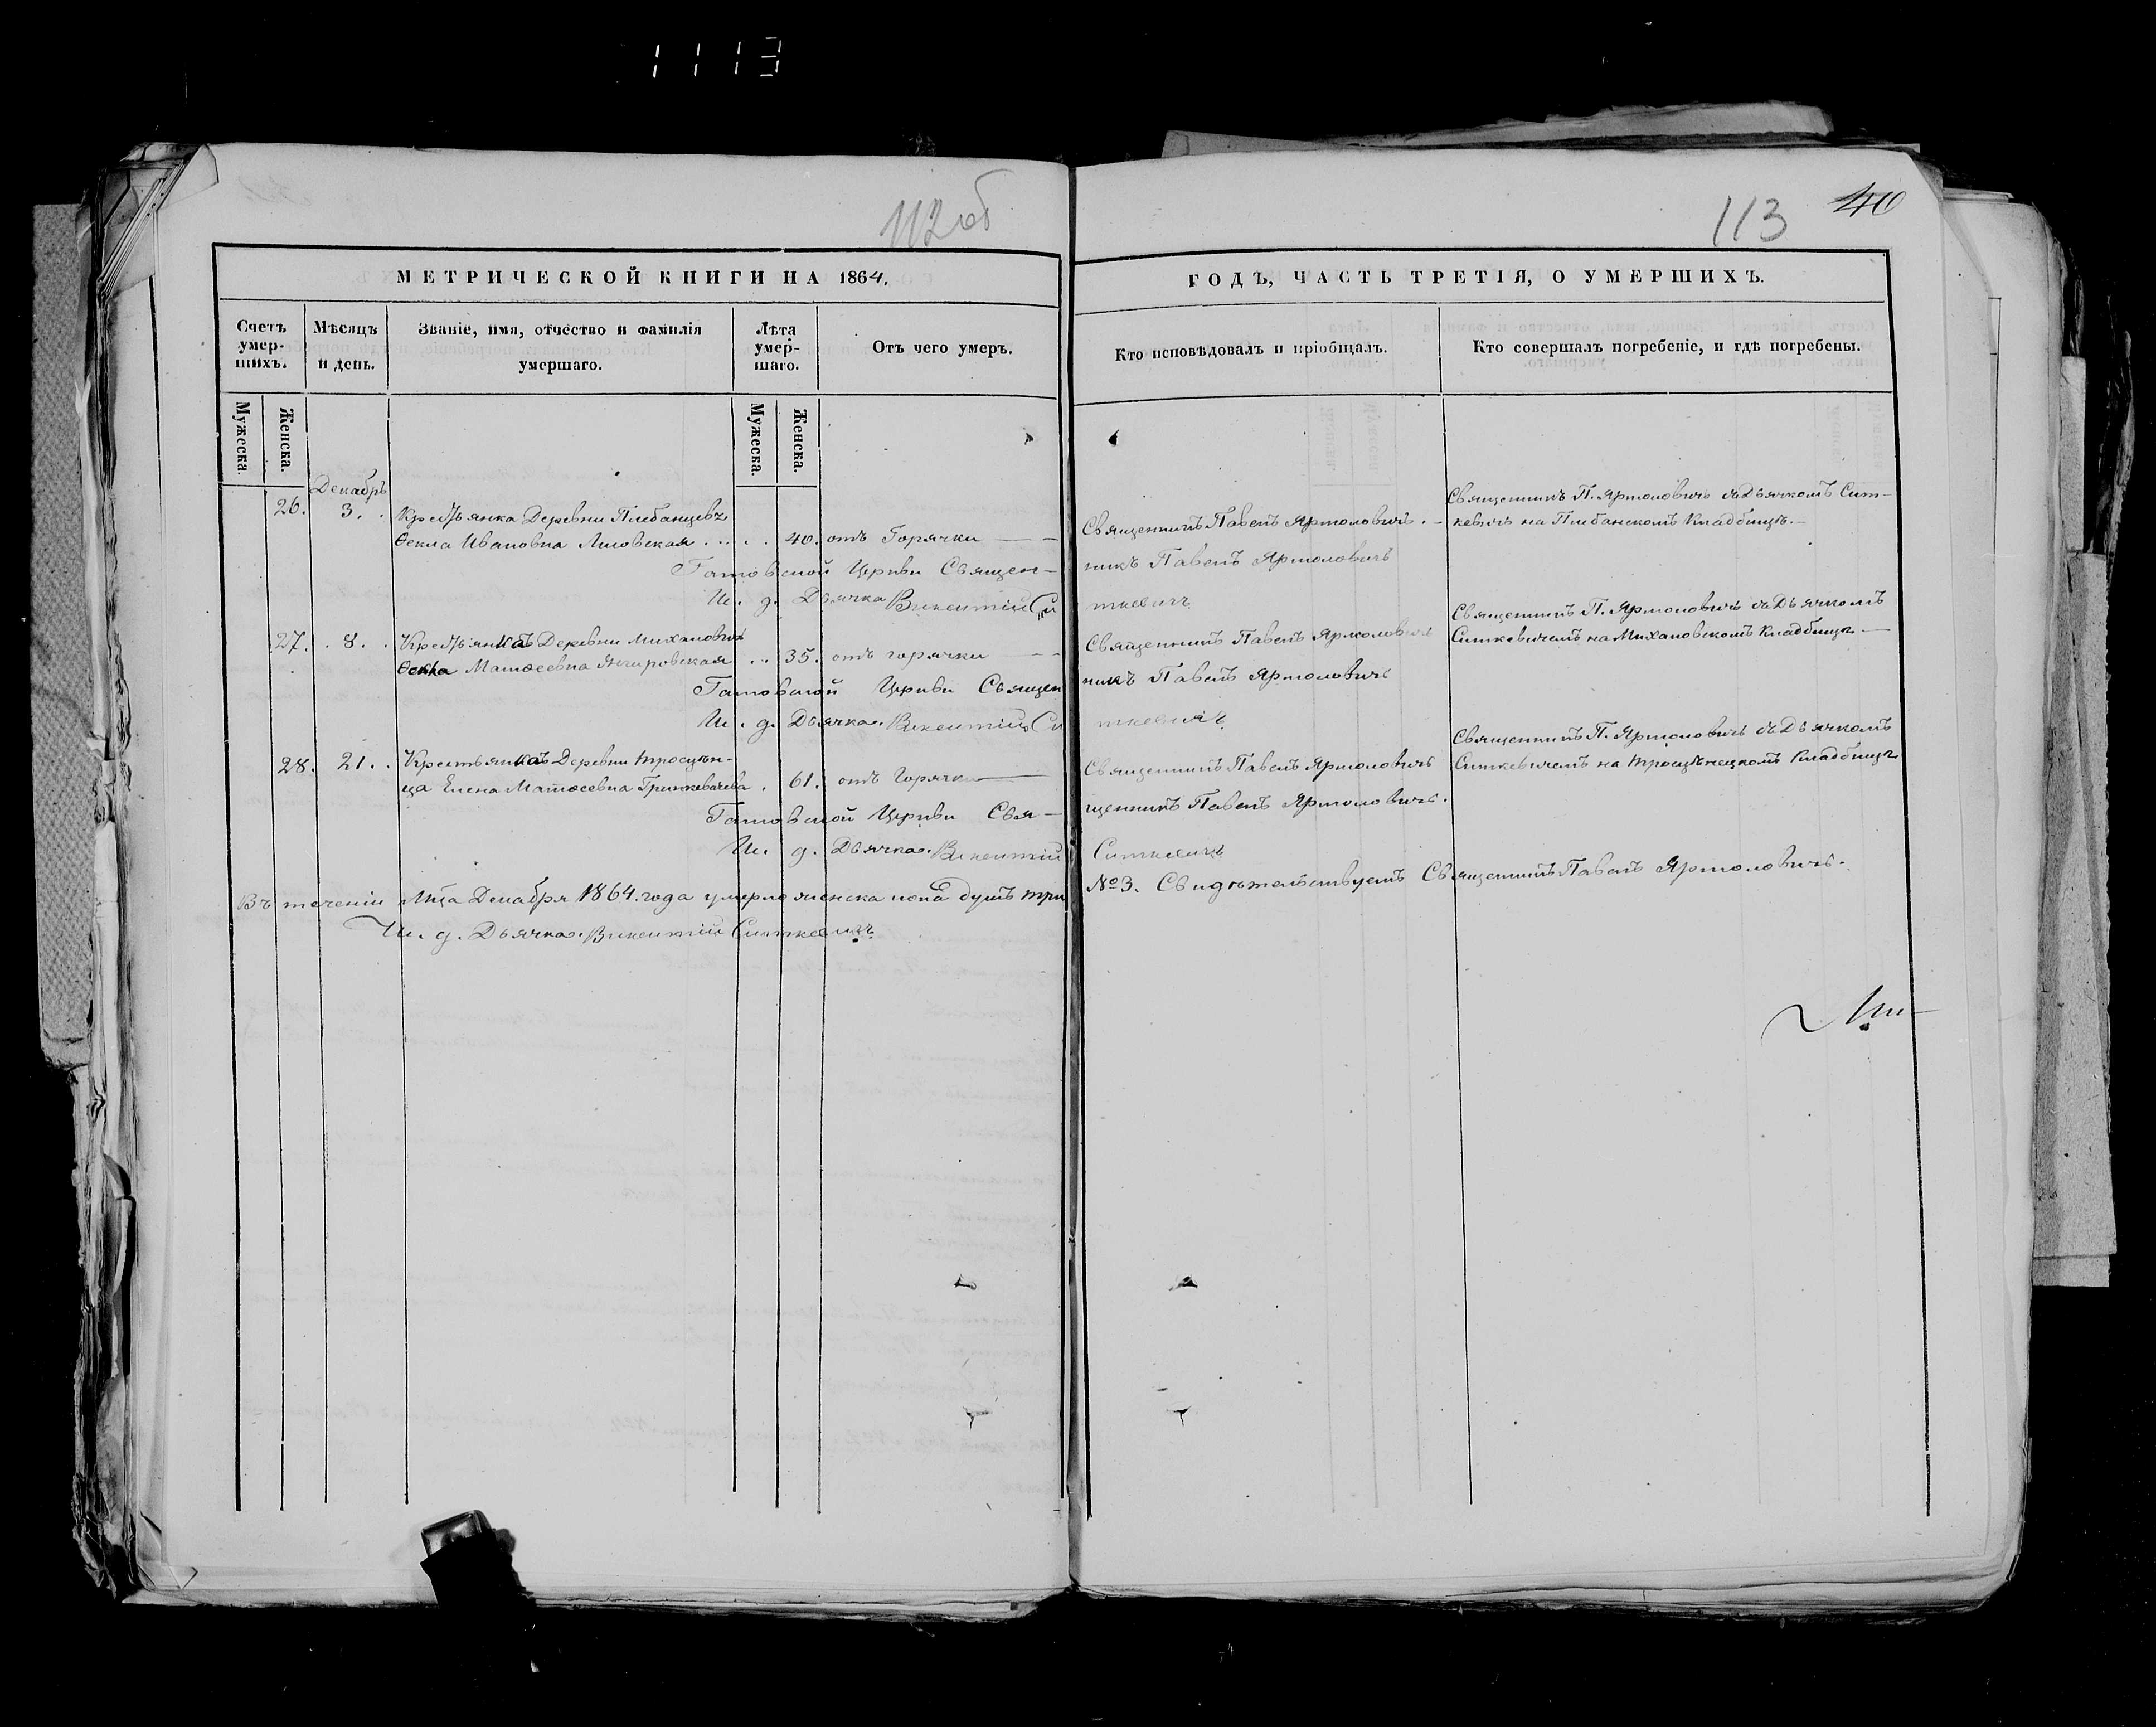 1113
112об
113 40
МЕТРИЧЕСКОЙ КНИГИ НА 1864.
ГОДЪ, ЧАСТЬ ТРЕТІЯ, О УМЕРШИХЪ.
Счетъ умер-шихъ.
Мѣсяцъ и день.
Званіе, имя, отчество и фамилія умершаго.
Лѣта умер-шаго.
Отъ чего умеръ.
Кто исповѣдовалъ и пріобщалъ.
Кто совершалъ погребеніе, и гдѣ погребены.
Мужеска.
Женска.
Мужеска.
Женска.
Декабрь
26. 3. Крестьянка Деревни Плебанцевъ
Ѳекла Ивановна Лисовская 40. отъ Горячки
Священникъ Павелъ Ярмоловичъ.
Священникъ П. Ярмоловичъ съ Дьячкомъ Сит-
кевичъ на Плебанскомъ Кладбищѣ.
Гатовской Церкви Священ-
никъ Павелъ Ярмоловичъ
И. д. Дьячка Викентій Си
ткевичъ
27. 8. Крестьянка Деревни Михановичъ
Ѳекла Матѳеевна Янчировская 35. отъ горячки
Священникъ Павелъ Ярмоловичъ
Священникъ П. Ярмоловичъ съ Дьячкомъ
Ситкевичемъ на Михановскомъ Кладбищѣ
Гатовской Церкви Священ
никъ Павелъ Ярмоловичъ
И. д. Дьячка. Викентій Си
ткевичъ
28. 21. Крестьянка Деревни Тросцѣн-
ца Елена Матѳеевна Гринкевичева 61. отъ Горячки
Священникъ Павелъ Ярмоловичъ
Священникъ П. Ярмоловичъ съ Дьячкомъ
Ситкевичемъ на Тросцѣнецкомъ Кладбищѣ
Гатовской Церкви Свя-
щенникъ Павелъ Ярмоловичъ.
И. д. Дьячка. Викентій
Ситкевичъ
Въ теченіи Мца Декабря 1864. года умерло женска пола душъ три
№3. Свидѣтельствуемъ Священникъ Павелъ Ярмоловичъ.
И. д. Дьячка. Викентій Ситкевичъ